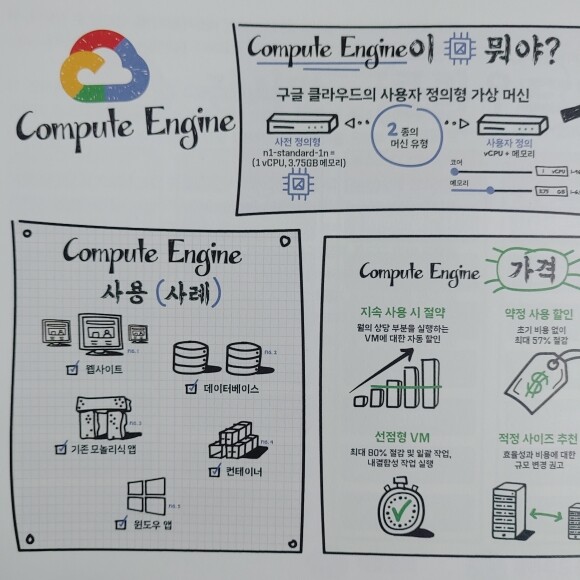 Compute Engine
Compute Engine이 뭐야?
구글 클라우드의 사용자 정의형 가상 머신
사전 정의형
n1-standard-1n =
(1 vCPU, 3.75GB 메모리)
2 종의
머신 유형
사용자 정의
vCPU + 메모리
코어
1 vCPU
메모리
3.75 GB
Compute Engine
사용 (사례)
no. 1
웹사이트
no. 2
데이터베이스
no. 3
기존 모놀리식 앱
no. 4
컨테이너
no. 5
윈도우 앱
Compute Engine 가격
지속 사용 시 절약
월의 상당 부분을 실행하는
VM에 대한 자동 할인
약정 사용 할인
초기 비용 없이
최대 57% 절감
$
선점형 VM
최대 80% 절감 및 일괄 작업,
내결함성 작업 실행
적정 사이즈 추천
효율성과 비용에 대한
규모 변경 권고